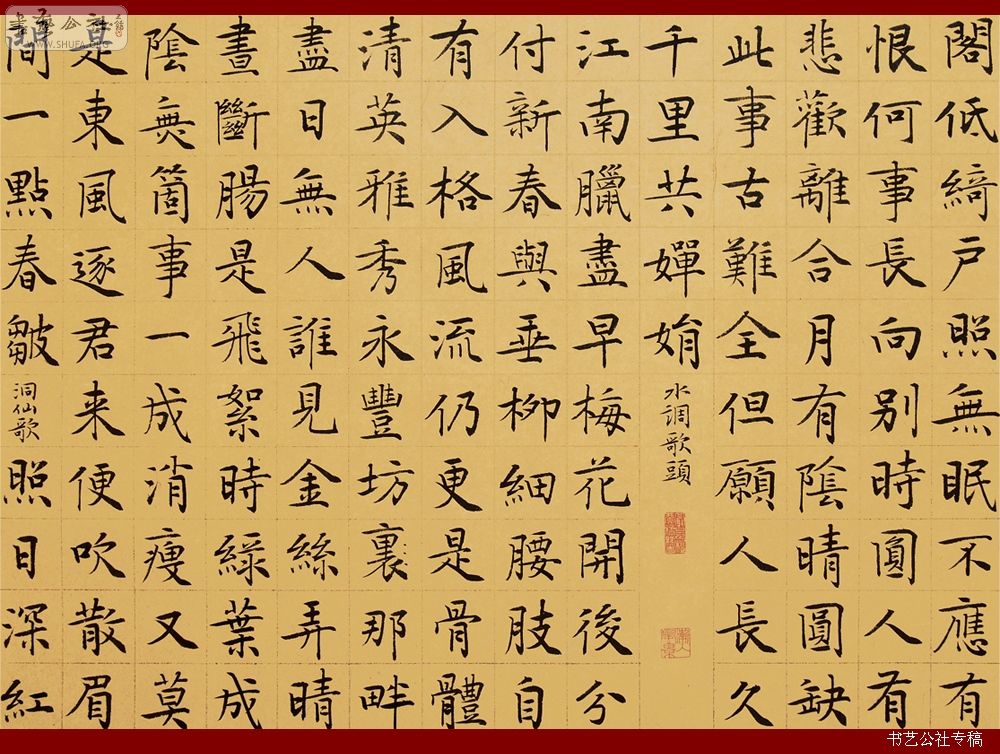 閣低綺戶照無眠不應有
恨何事長向别時圓人有
悲歡離合月有陰晴圓缺
此事古難全但願人長久
千里共嬋娟
水調歌頭
江南臘盡早梅花開後分
付新春與垂柳細腰肢自
有入格風流仍更是骨體
清英雅秀永豐坊裏那畔
盡日無人誰見金絲弄晴
晝斷腸是飛絮時綠葉成
陰無箇事一成消瘦又莫
是東風逐君来便吹散眉
間一點春皺
洞仙歌
照日深紅
WWW.SHUFA.ORG
书艺公社专稿